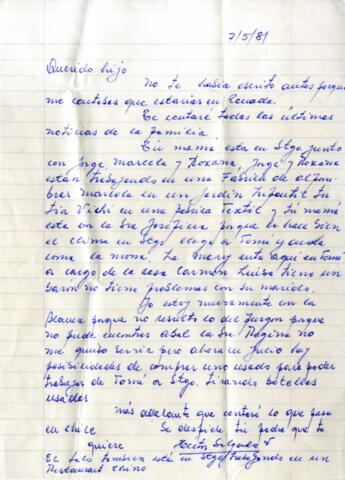 7/5/81
Querido hijo
No te había escrito antes porque
me contases que estarías en Canada.
Te contaré todas las últimas
noticias de la familia.
Tu mamá esta en Stgo. junto
con Jorge, marcela y Roxana, Jorge y Roxana
están trabajando en una Fabrica de alfom-
bras marcela en un Jardin Infantil tu
tia Vicki en una fabrica Textil y tú mamá
esta con la Sra Josefina porque le hace bien
el clima en Stgo. llega a Tomé y anda
como la mona. La mery está aqui en tomé
a cargo de la casa Carmen Luisa tiene un
baron no tiene problemas con su marido.
Yo estoy nuevamente con la
Blanca porque no resultó lo del furgon porque
no pude encontrar abal la Sra Regina no
me quiso servir pero ahora en Julio hay
posibilidades de comprar uno usado para poder
trabajar de Tomé a Stgo. tirando botellas
usadas
más adelante que contaré lo que pasa
en chile Se despide tú padre que te
quiere Hector
El Lilo tambien está en Stgo trabajando en un
Restaurant chino